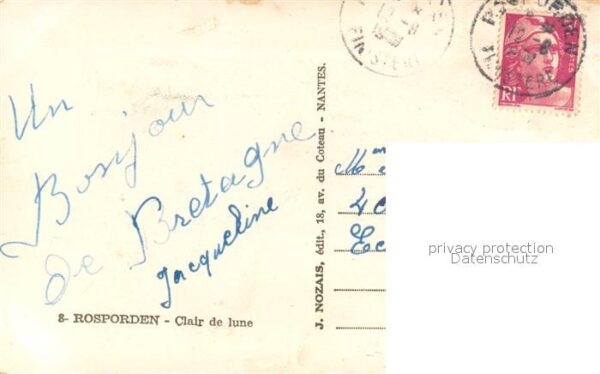 Un
Bonjour
de Bretagne
Jacqueline
8- ROSPORDEN - Clair de lune
J. NOZAIS, édit., 18, av. du Coteau - NANTES.
ROSPORDEN
FINISTERE
RF
privacy protection
Datenschutz